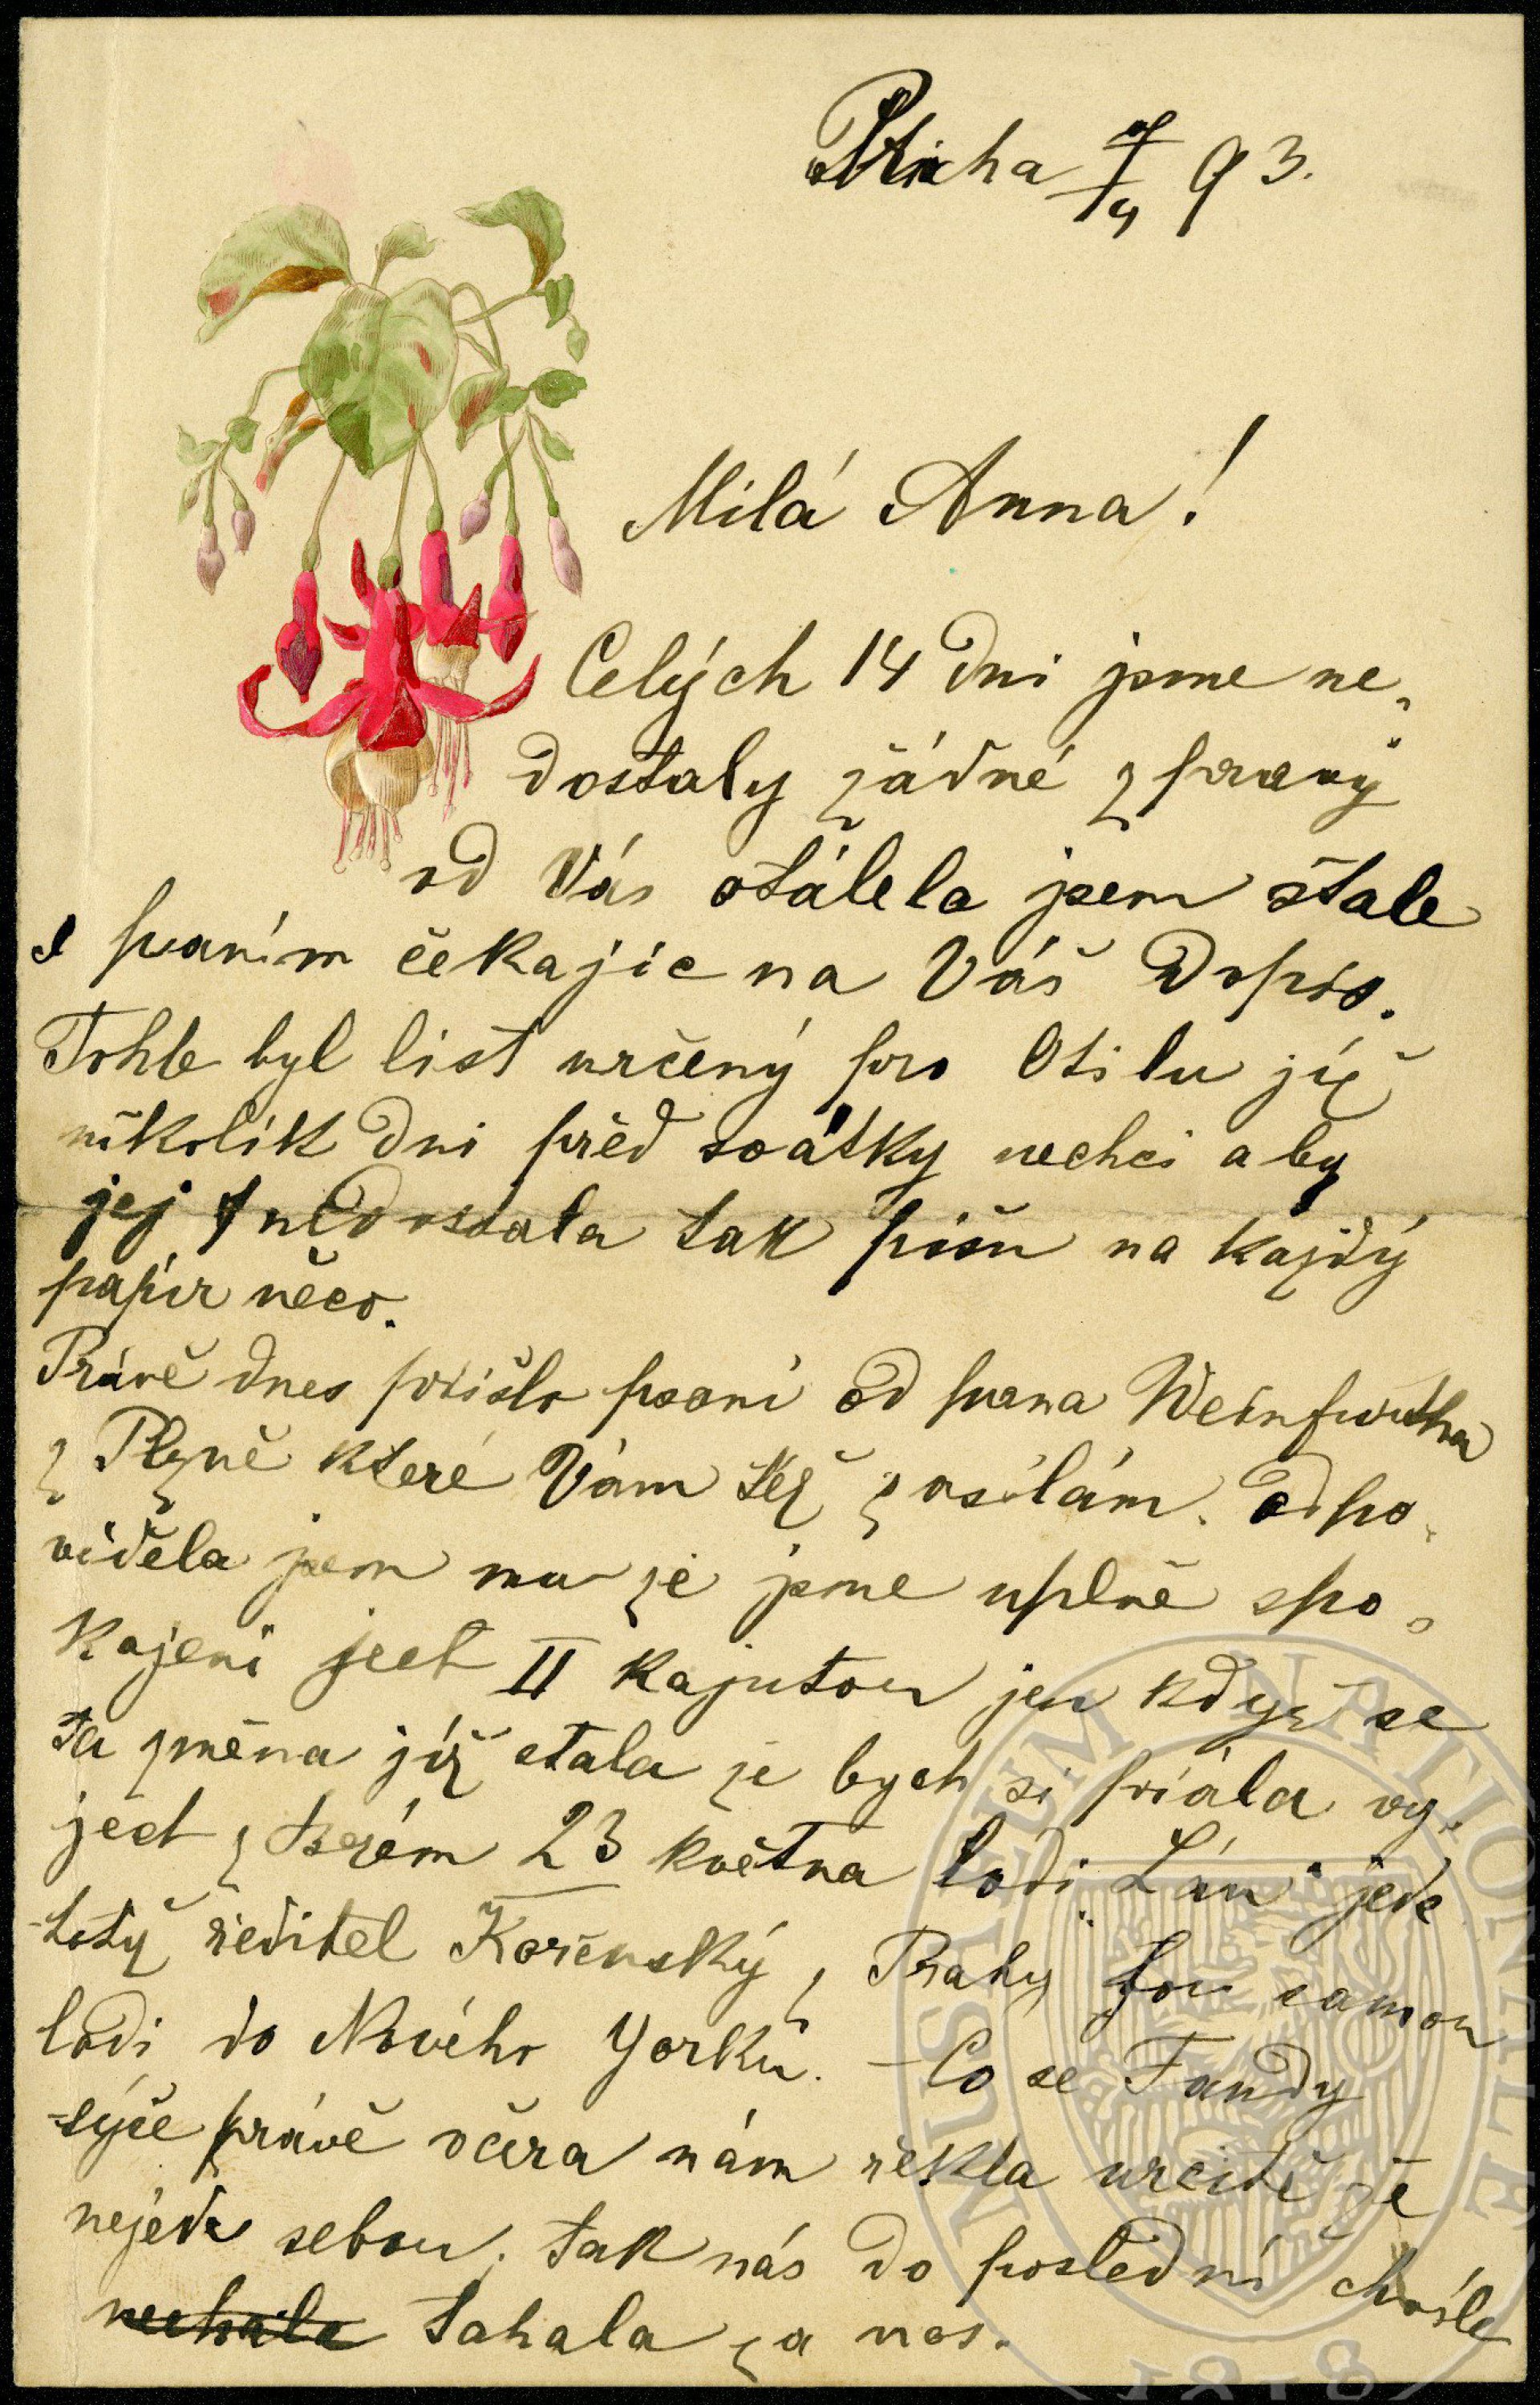 Praha 9/4 93.
Milá Anna!
Celých 14 dni jsme ne-
dostaly žádné zpravy
od Vás otálela jsem stale
s psaním čekajíc na Váš dopis.
Tohle byl list určený pro Otilu již
několik dni před svátky nechci aby
jej nedostala tak pišu na každý
papír něco.
Právě dnes přišlo psaní od pana Weinfurtha
z Plzně které Vám též zasílám. Odpo-
viděla jsem mu že jsme uplně spo-
kojeni ject II kajutou jen když se
ta změna již stala že bych si přála vy-
ject z Brém 23 května lodi „Lán" jede
totiž ředitel Kořenský z Prahy tou samou
lodi do Nového Yorku. – Co se Fandy
týče právě včera nám řekla určitě že
nejede sebou, tak nás do poslední chvíle
nechala tahala za nos.
MUSEUM NATIONALE
1818